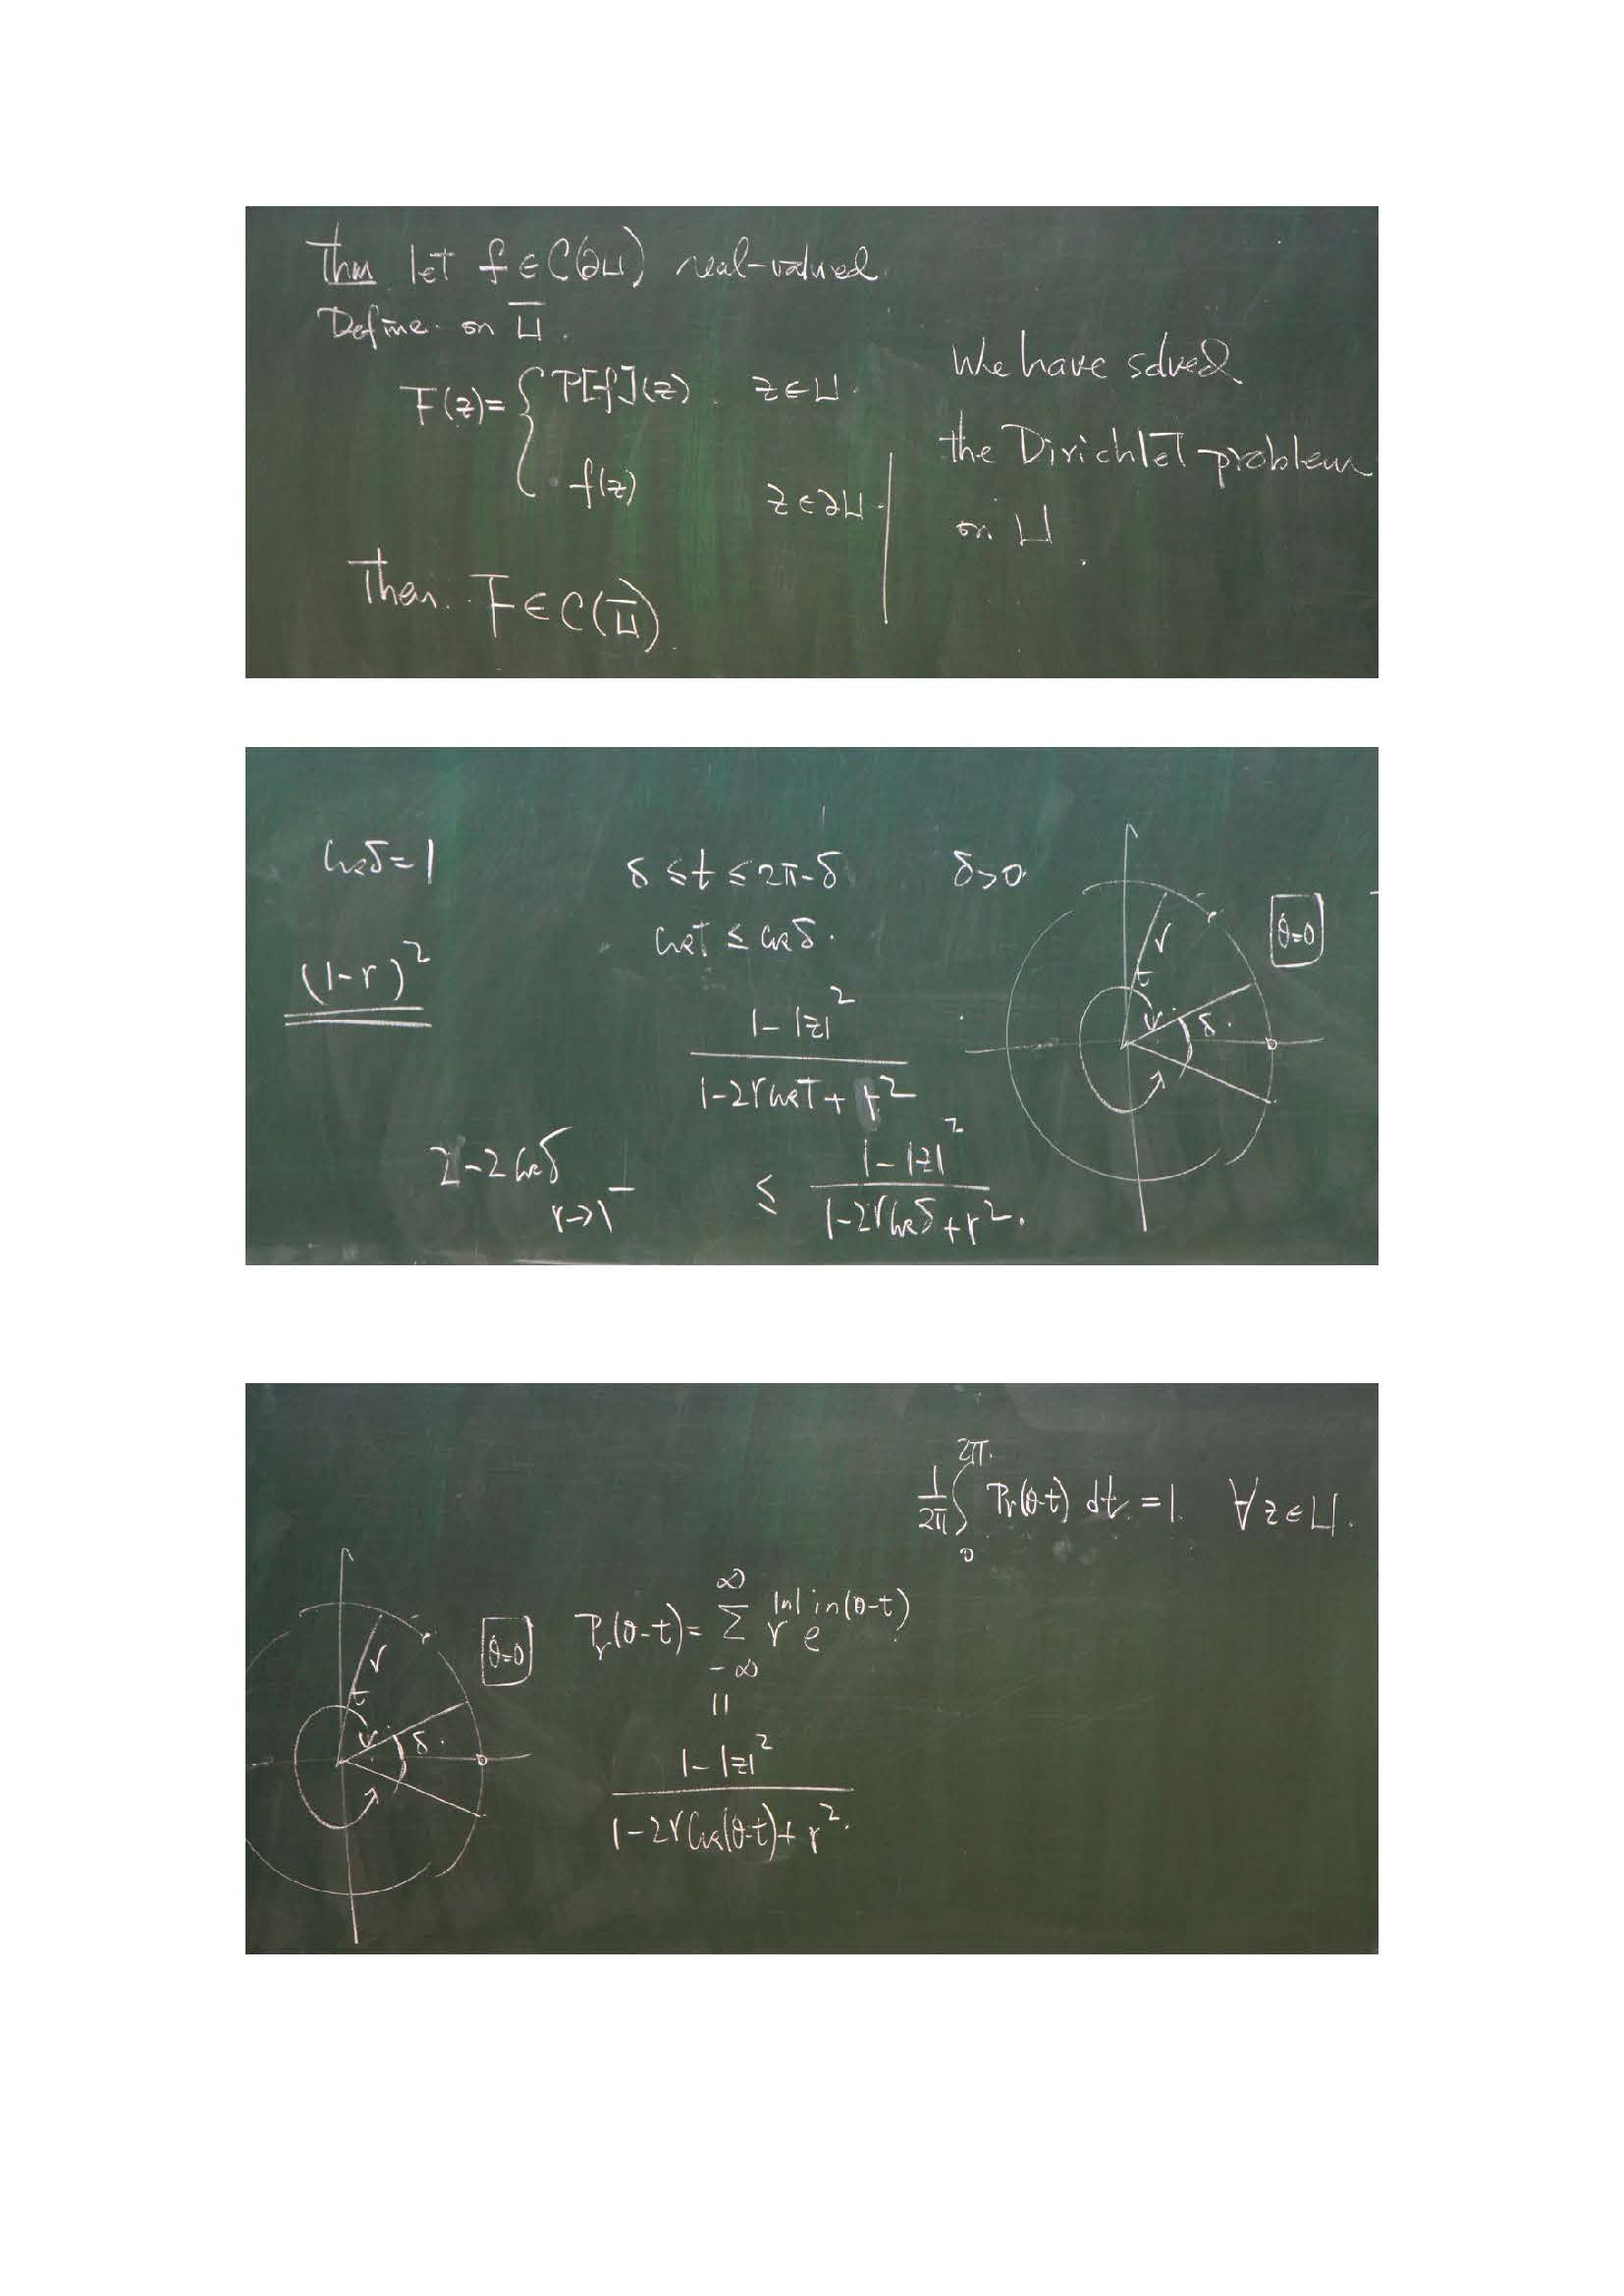 Thm let f ∈ C(∂U) real-valued
Define on U̅.
F(z) = { P[f](z) z ∈ U.
f(z) z ∈ ∂U.
Then F ∈ C(U̅).
We have solved
the Dirichlet problem
on U.
cos δ = 1
(1-r)²
δ ≤ t ≤ 2π-δ δ>0
cos t ≤ cos δ.
1-|z|²
1-2r cos t + r²
2-2cos δ
r→1⁻
≤ 1-|z|²
1-2r cos δ + r².
θ=0
r
t
δ.
1/2π ∫₀^2π. Pr(θ-t) dt = 1. ∀ z ∈ U.
Pr(θ-t) = ∑_{-∞}^{∞} r^|n| e^in(θ-t)
||
1-|z|²
1-2r cos(θ-t) + r².
θ=0
r
t
δ.